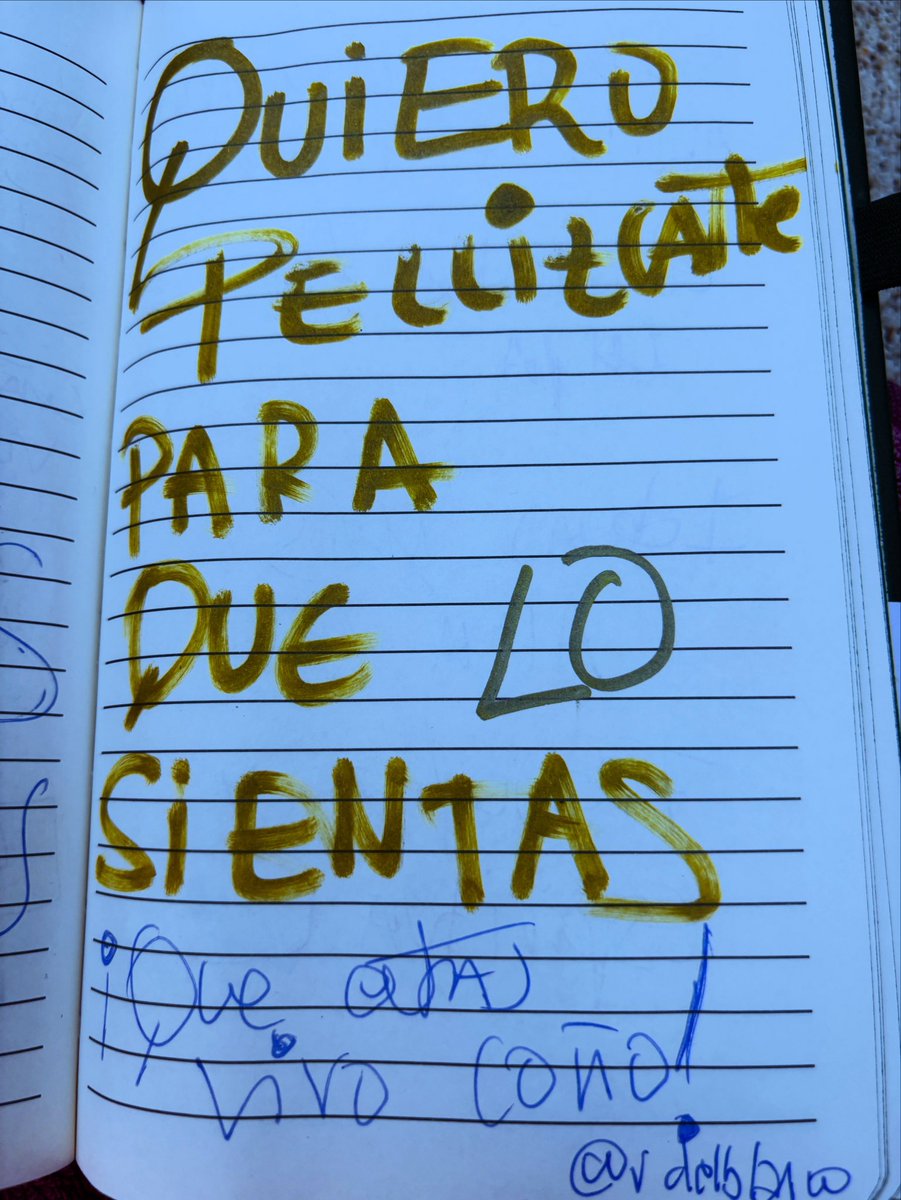 QUiERO
PellizcATTe
PARA
QUE LO
SiENTAS
¡Que estás
vivo coño!